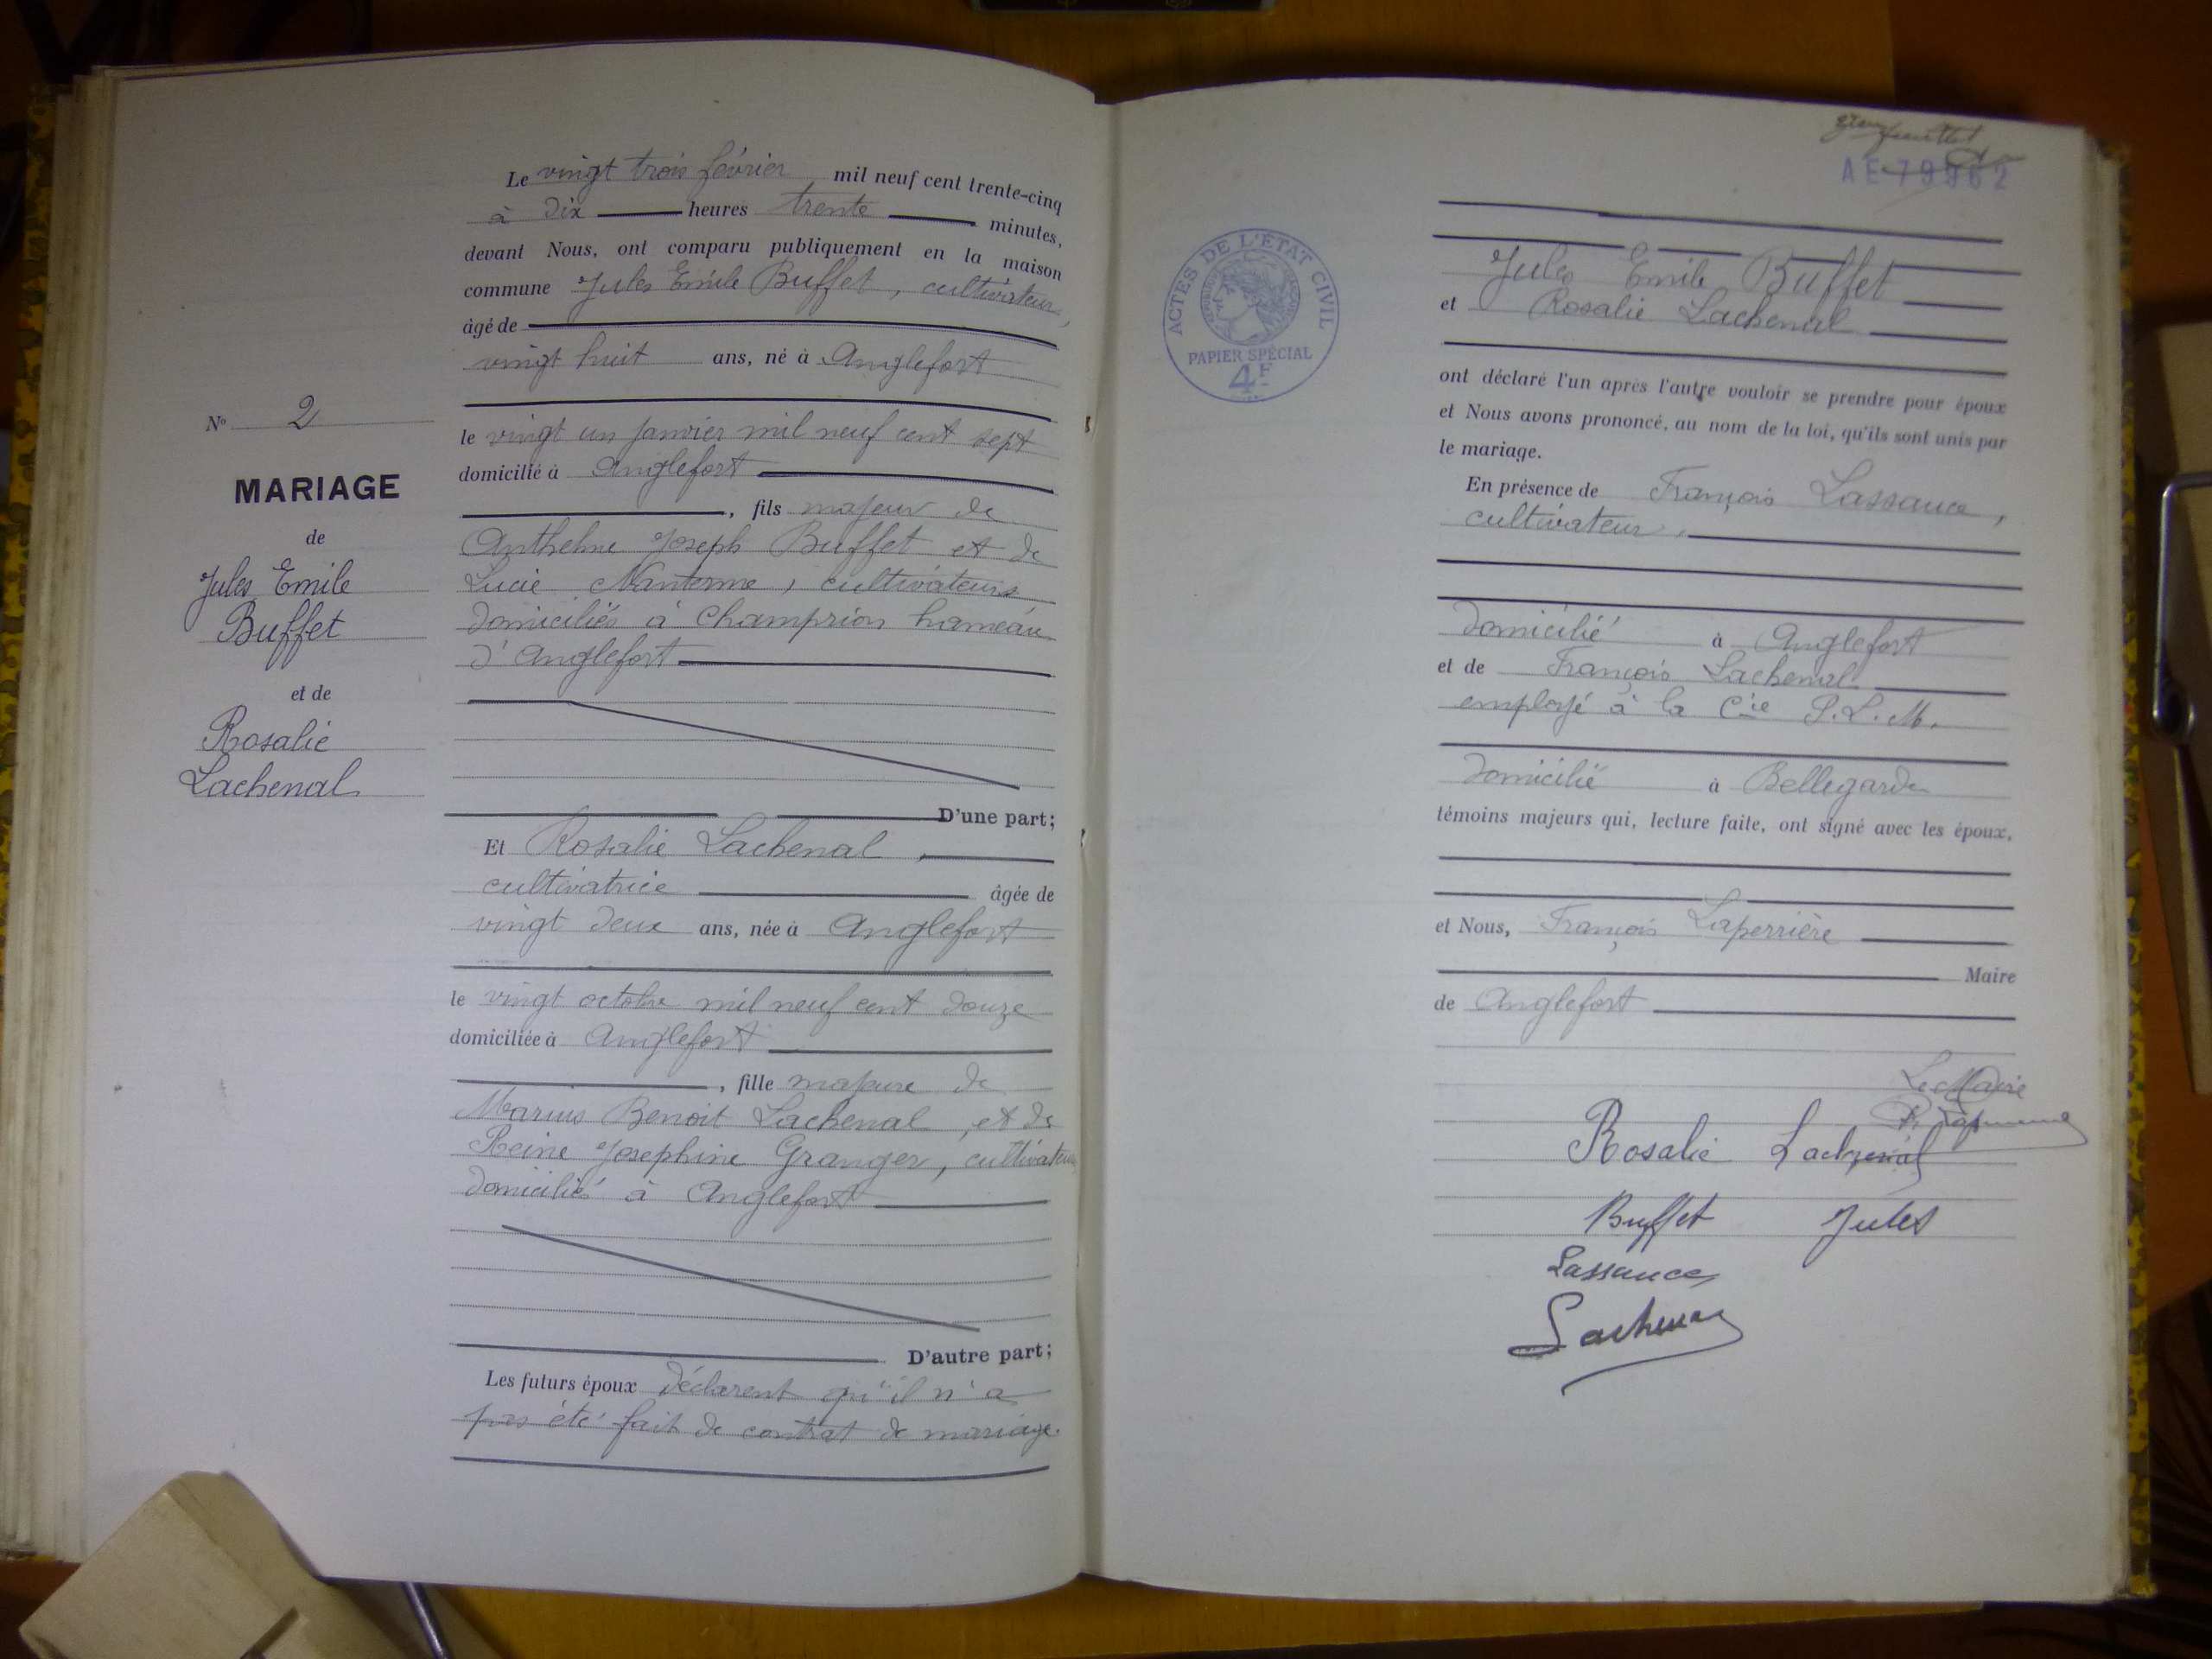 N° 2
MARIAGE
de
Jules Emile
Buffet
et de
Rosalie
Lachenal
Le vingt trois février mil neuf cent trente-cinq
à dix heures trente minutes,
devant Nous, ont comparu publiquement en la maison
commune Jules Emile Buffet, cultivateur,
âgé de
vingt huit ans, né à Anglefort
le vingt un janvier mil neuf cent sept
domicilié à Anglefort
, fils majeur de
Anthelme Joseph Buffet et de
Lucie Nanterme, cultivateurs
domiciliés à Champrion hameau
d'Anglefort
D'une part;
Et Rosalie Lachenal,
cultivatrice âgée de
vingt deux ans, née à Anglefort
le vingt octobre mil neuf cent douze
domiciliée à Anglefort
, fille majeure de
Marius Benoit Lachenal, et de
Reine Josephine Granger, cultivateurs
domiciliés à Anglefort
D'autre part;
Les futurs époux déclarent qu'il n'a
pas été fait de contrat de mariage.
AE 79962
ACTES DE L'ÉTAT CIVIL
PAPIER SPÉCIAL
4F
Jules Emile Buffet
et Rosalie Lachenal
ont déclaré l'un après l'autre vouloir se prendre pour époux
et Nous avons prononcé, au nom de la loi, qu'ils sont unis par
le mariage.
En présence de François Lassauce,
cultivateur,
domicilié à Anglefort
et de François Lachenal
employé à la Cie P.L.M.
domicilié à Bellegarde
témoins majeurs qui, lecture faite, ont signé avec les époux,
et Nous, François Laperrière
Maire
de Anglefort
Le Maire
Rosalie Lachenal
Buffet Jules
Lassauce
Lachenal